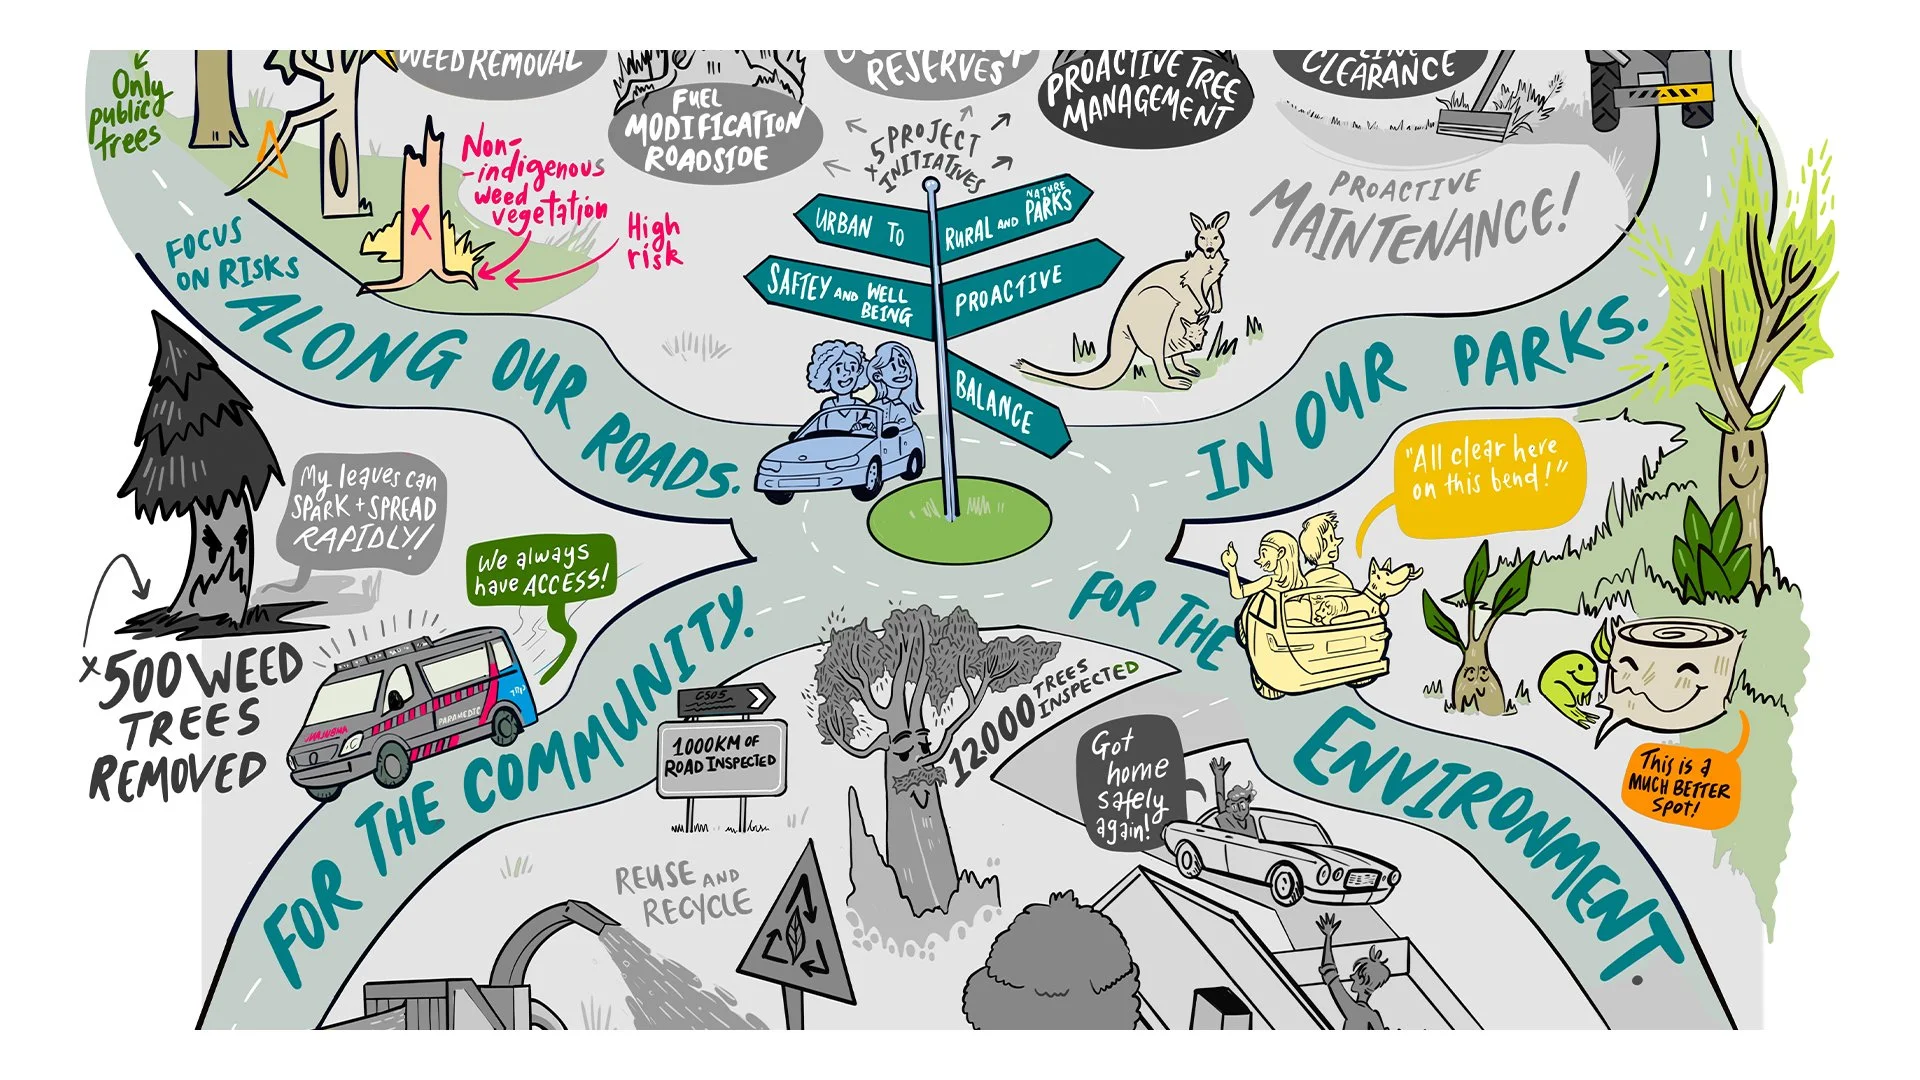 Only
public
trees
WEED REMOVAL
FUEL
MODIFICATION
ROADSIDE
RESERVES
PROACTIVE TREE
MANAGEMENT
LINE
CLEARANCE
x5 PROJECT
INITIATIVES
Non-
-indigenous
weed
vegetation
High
risk
X
FOCUS
ON RISKS
ALONG OUR ROADS.
URBAN TO
RURAL AND NATURE PARKS
SAFTEY AND WELL BEING
PROACTIVE
BALANCE
PROACTIVE
MAINTENANCE!
IN OUR PARKS.
My leaves can
SPARK + SPREAD
RAPIDLY!
We always
have ACCESS!
"All clear here
on this bend!"
x500 WEED
TREES
REMOVED
AMBULANCE
PARAMEDIC
FOR THE COMMUNITY.
C505
1000KM OF
ROAD INSPECTED
12000 TREES INSPECTED
FOR THE
ENVIRONMENT.
Got
home
safely
again!
This is a
MUCH BETTER
SPOT!
REUSE AND
RECYCLE